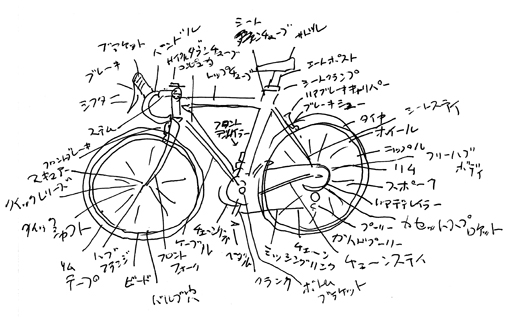 ブラケット
ハンドル
ブレーキ
シフター
ステム
トップチューブ
シート
チューブ
サドル
シートポスト
シートクランプ
リアブレーキキャリパー
ブレーキシュー
シートステイ
タイヤ
ホイール
ニップル
フリーハブ
ボディ
リム
スポーク
リアディレイラー
カセットスプロケット
プーリー
ガイドプーリー
チェーンステイ
チェーン
ミッシングリンク
ボトム
ブラケット
クランク
ペダル
チェーンリング
フロント
ディレイラー
フロントブレーキ
スキュアー
クイックレリーズ
シャフト
ハブ
フランジ
リム
テープ
ビード
バルブ穴
フロント
フォーク
ケーブル